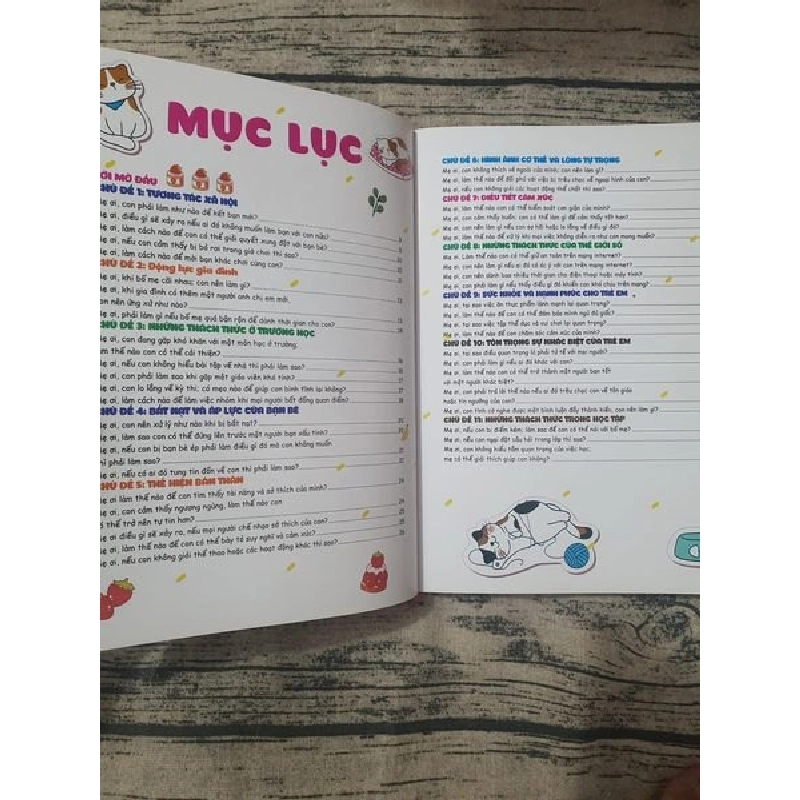 MỤC LỤC
LỜI MỞ ĐẦU
CHỦ ĐỀ 1: TƯƠNG TÁC XÃ HỘI
Mẹ ơi, con phải làm như nào để kết bạn mới?
Mẹ ơi, điều gì sẽ xảy ra nếu ai đó không muốn làm bạn với con nữa?
Mẹ ơi, làm cách nào để con có thể giải quyết xung đột với bạn bè?
Mẹ ơi, nếu con cảm thấy bị bỏ rơi trong giờ chơi thì sao?
Mẹ ơi, làm cách nào để mời bạn khác chơi cùng con?
CHỦ ĐỀ 2: Động lực gia đình
Mẹ ơi, khi bố mẹ cãi nhau, con nên làm gì?
Mẹ ơi, khi gia đình có thêm một người anh chị em mới,
con nên ứng xử như nào?
Mẹ ơi, phải làm gì nếu bố mẹ quá bận rộn để dành thời gian cho con?
CHỦ ĐỀ 3: NHỮNG THÁCH THỨC Ở TRƯỜNG HỌC
Mẹ ơi, con đang gặp khó khăn với một môn học ở trường,
làm thế nào con có thể cải thiện?
Mẹ ơi, nếu con không hiểu bài tập về nhà thì phải làm sao?
Mẹ ơi, con phải làm sao khi gặp một giáo viên khó tính?
Mẹ ơi, con lo lắng về kỳ thi, có mẹo nào để giúp con bình tĩnh lại không?
Mẹ ơi, làm cách nào để làm việc nhóm khi mọi người bất đồng quan điểm?
CHỦ ĐỀ 4: BẮT NẠT VÀ ÁP LỰC CỦA BẠN BÈ
Mẹ ơi, con nên xử lý như nào khi bị bắt nạt?
Mẹ ơi, làm sao con có thể đứng lên trước một người bạn xấu tính?
Mẹ ơi, nếu con bị bạn bè ép phải làm điều gì đó mà con không muốn
thì phải làm sao?
Mẹ ơi, nếu có ai đó tung tin đồn về con thì phải làm sao?
CHỦ ĐỀ 5: THỂ HIỆN BẢN THÂN
Mẹ ơi làm thế nào để con tìm thấy tài năng và sở thích của mình?
Mẹ ơi, con cảm thấy ngượng ngùng, làm thế nào con
có thể trở nên tự tin hơn?
Mẹ ơi điều gì sẽ xảy ra, nếu mọi người chế nhạo sở thích của con?
Mẹ ơi, làm thế nào để con có thể bày tỏ suy nghĩ và cảm xúc?
Mẹ ơi, nếu con không giỏi thể thao hoặc các hoạt động khác thì sao?
CHỦ ĐỀ 6: HÌNH ẢNH CƠ THỂ VÀ LÒNG TỰ TRỌNG
Mẹ ơi, con không thích vẻ ngoài của mình; con nên làm gì?
Mẹ ơi, làm thế nào để đối phó với việc bị trêu chọc về ngoại hình của con?
Mẹ ơi, nếu con không giỏi các hoạt động thể chất thì sao?
CHỦ ĐỀ 7: ĐIỀU TIẾT CẢM XÚC
Mẹ ơi, làm thế nào con có thể kiểm soát cơn giận của mình?
Mẹ ơi, con cảm thấy buồn, con có thể làm gì để cảm thấy tốt hơn?
Mẹ ơi, con nên làm gì nếu con sợ hãi hoặc bị lo lắng về điều gì đó?
Mẹ ơi, làm thế nào để xử lí khi mọi việc không diễn ra như con mong muốn?
CHỦ ĐỀ 8: NHỮNG THÁCH THỨC CỦA THẾ GIỚI SỐ
Mẹ ơi, Làm thế nào con có thể giữ an toàn trên mạng internet?
Mẹ ơi, con nên làm gì nếu ai đó có ác ý với con trên mạng internet?
Mẹ ơi, con nên dành bao nhiêu thời gian cho điện thoại hoặc máy tính?
Mẹ ơi, con phải làm gì nếu thấy điều gì đó khiến con khó chịu trên mạng?
CHỦ ĐỀ 9: SỨC KHỎE VÀ HẠNH PHÚC CHO TRẺ EM
Mẹ ơi, tại sao việc ăn thực phẩm lành mạnh lại quan trọng?
Mẹ ơi, làm thế nào để con có thể đảm bảo mình ngủ đủ giấc?
Mẹ ơi, tại sao việc tập thể dục và vui chơi lại quan trọng?
Mẹ ơi, làm thế nào để con chăm sóc cảm xúc của mình?
CHỦ ĐỀ 10: TÔN TRỌNG SỰ KHÁC BIỆT CỦA TRẺ EM
Mẹ ơi, tại sao điều quan trọng là phải tử tế với mọi người?
Mẹ ơi, con phải làm gì nếu ai đó khác với con?
Mẹ ơi, làm thế nào con có thể trở thành một người bạn tốt
với một người khác biệt?
Mẹ ơi, con phải trả lời thế nào nếu ai đó trêu chọc con về tôn giáo
hoặc tín ngưỡng của con?
Mẹ ơi, con tình cờ nghe được một bình luận đầy thành kiến, con nên làm gì?
CHỦ ĐỀ 11: NHỮNG THÁCH THỨC TRONG HỌC TẬP
Mẹ ơi, nếu con bị điểm kém; làm sao để con có thể nói với bố mẹ?
Mẹ ơi, nếu con ngại đặt câu hỏi trong lớp thì sao?
Mẹ ơi, con không hiểu tầm quan trọng của việc học,
mẹ có thể giải thích giúp con không?